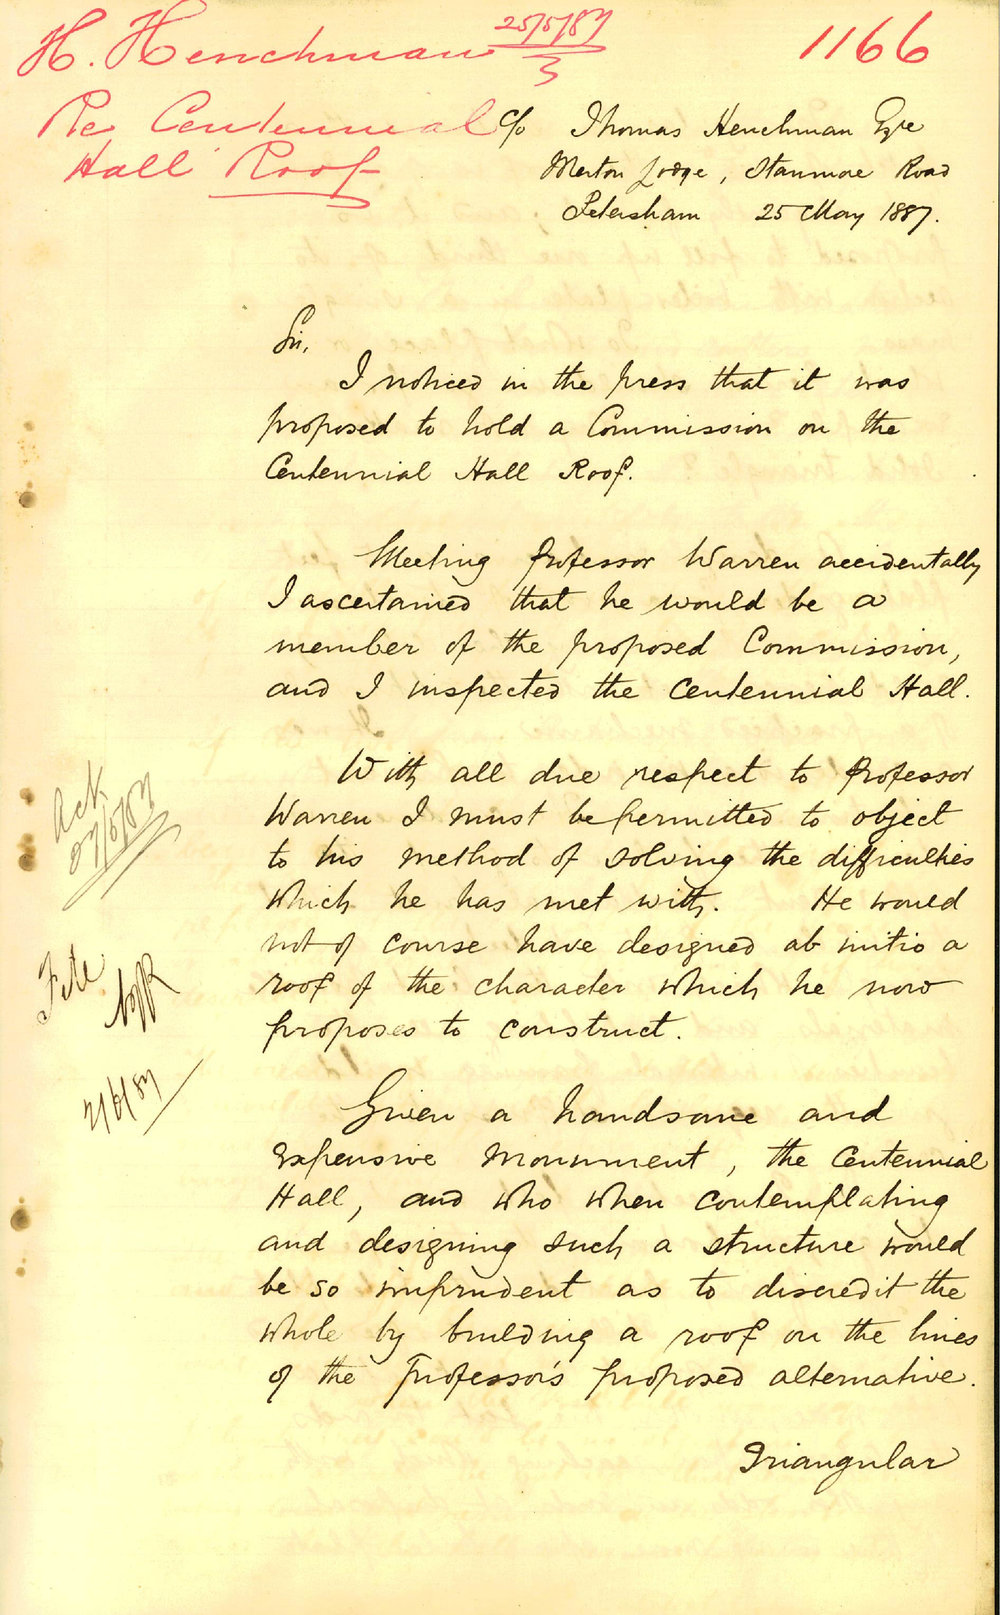 H. Henchman 25/5/87
3
1166
Re Centennial
Hall Roof
c/o Thomas Henchman Esqre
Merton Lodge, Stanmore Road
Petersham 25 May 1887.
Sir,
I noticed in the press that it was
proposed to hold a Commission on the
Centennial Hall Roof.
Meeting Professor Warren accidentally
I ascertained that he would be a
member of the proposed Commission,
and I inspected the Centennial Hall.
With all due respect to Professor
Warren I must be permitted to object
to his method of solving the difficulties
which he has met with. He would
not of course have designed ab initio a
roof of the character which he now
proposes to construct.
Given a handsome and
expensive monument, the Centennial
Hall, and who when contemplating
and designing such a structure would
be so imprudent as to discredit the
whole by building a roof on the lines
of the Professor's proposed alternative.
Triangular
Ack
File
2/6/87